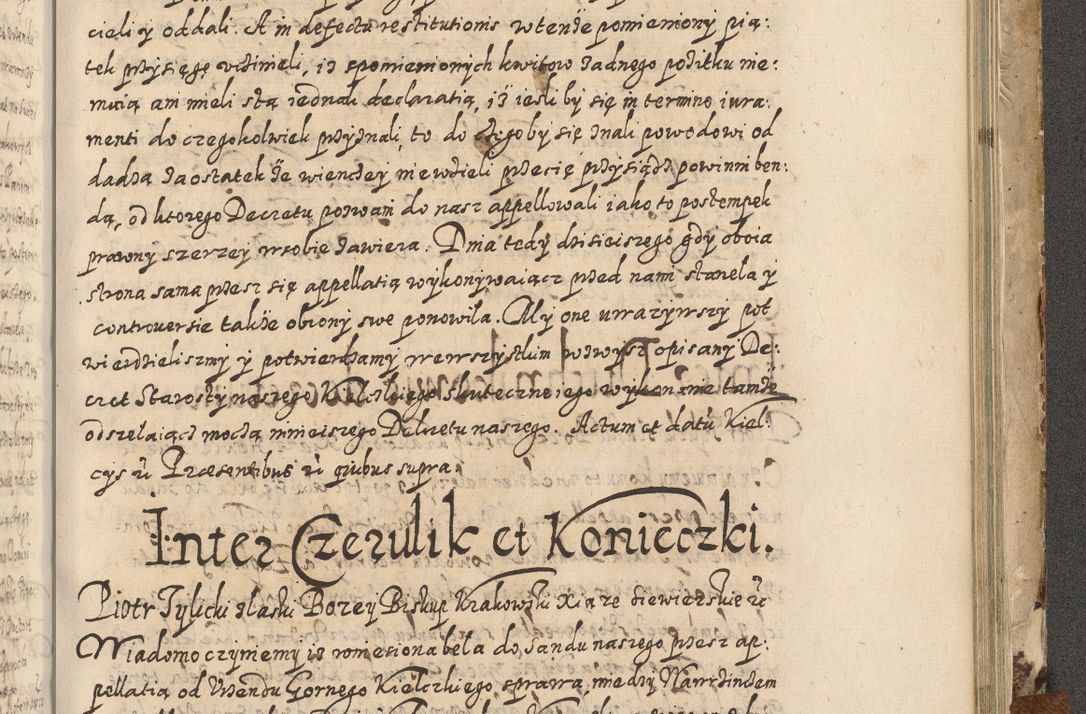 cieli y oddali. A in defectu restitutionis wtenże pomieniony pią:
tek przysięgę uczinieli, iż zpomienionych kwitow żadnego pożitku nie:
maią ani mieli stą iednak declaratią, iż iesli by się in termino iura:
menti do czegokolwiek przyznali, to do czego by się znali powodowi od
dadzą zaostatek że wiencey niewzieli przecię przysiądz powinni ben:
dą, od ktorego Decretu pozwani do nasz appellowali iako to postempek
prawny szerzey wsobie zawiera. Dnia tedy dzisieiszego gdy oboia
strona sama przesz się appellatią wykonywaiącz przed nami stanela y
controuersie także obrony swe ponowila. My one uwazywszy pot
wierdzieliszmy y potwierdzamy wewszystkim wzwysz opisany De:
cret Starosty naszego Kielczkiego skuteczne iego wykonanie tamże
odszelaiącz moczą ninieiszego Dekretu naszego. Actum et datu Kiel:
cys ut Præsentibus ut quibus supra.
Inter Czerulik et Konieczki.
Piotr Tylicki zlaski Bozey Biskup Krakowski Xiąze Siewierskie etc
Wiadomo czyniemy iz womiesiona bela do Sandu naszego przesz ap:
pellatią od Vrzendu Gornego Kielczkiego sprawa miedzy Wawrzincem